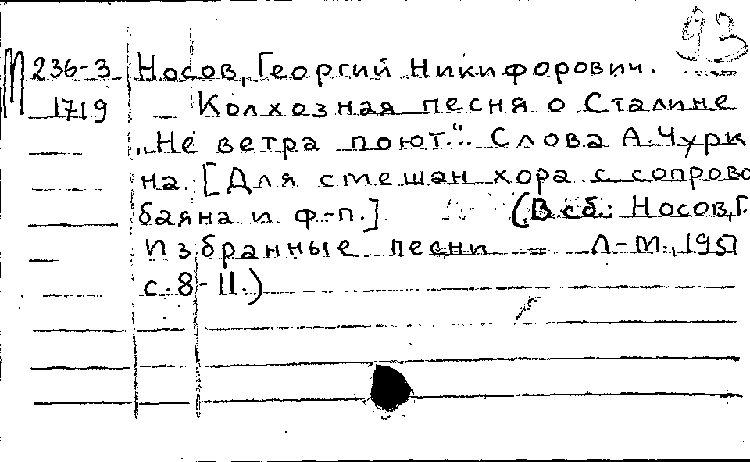 93
М 236-3 Носов, Георгий Никифорович.
1719 Колхозная песня о Сталине
„Не ветра поют." Слова А. Чурк
на. [Для смешан хора с сопрово
баяна и ф.-п.] (В сб.: Носов, Г.
Избранные песни – Л-М., 195
с. 8-11.)